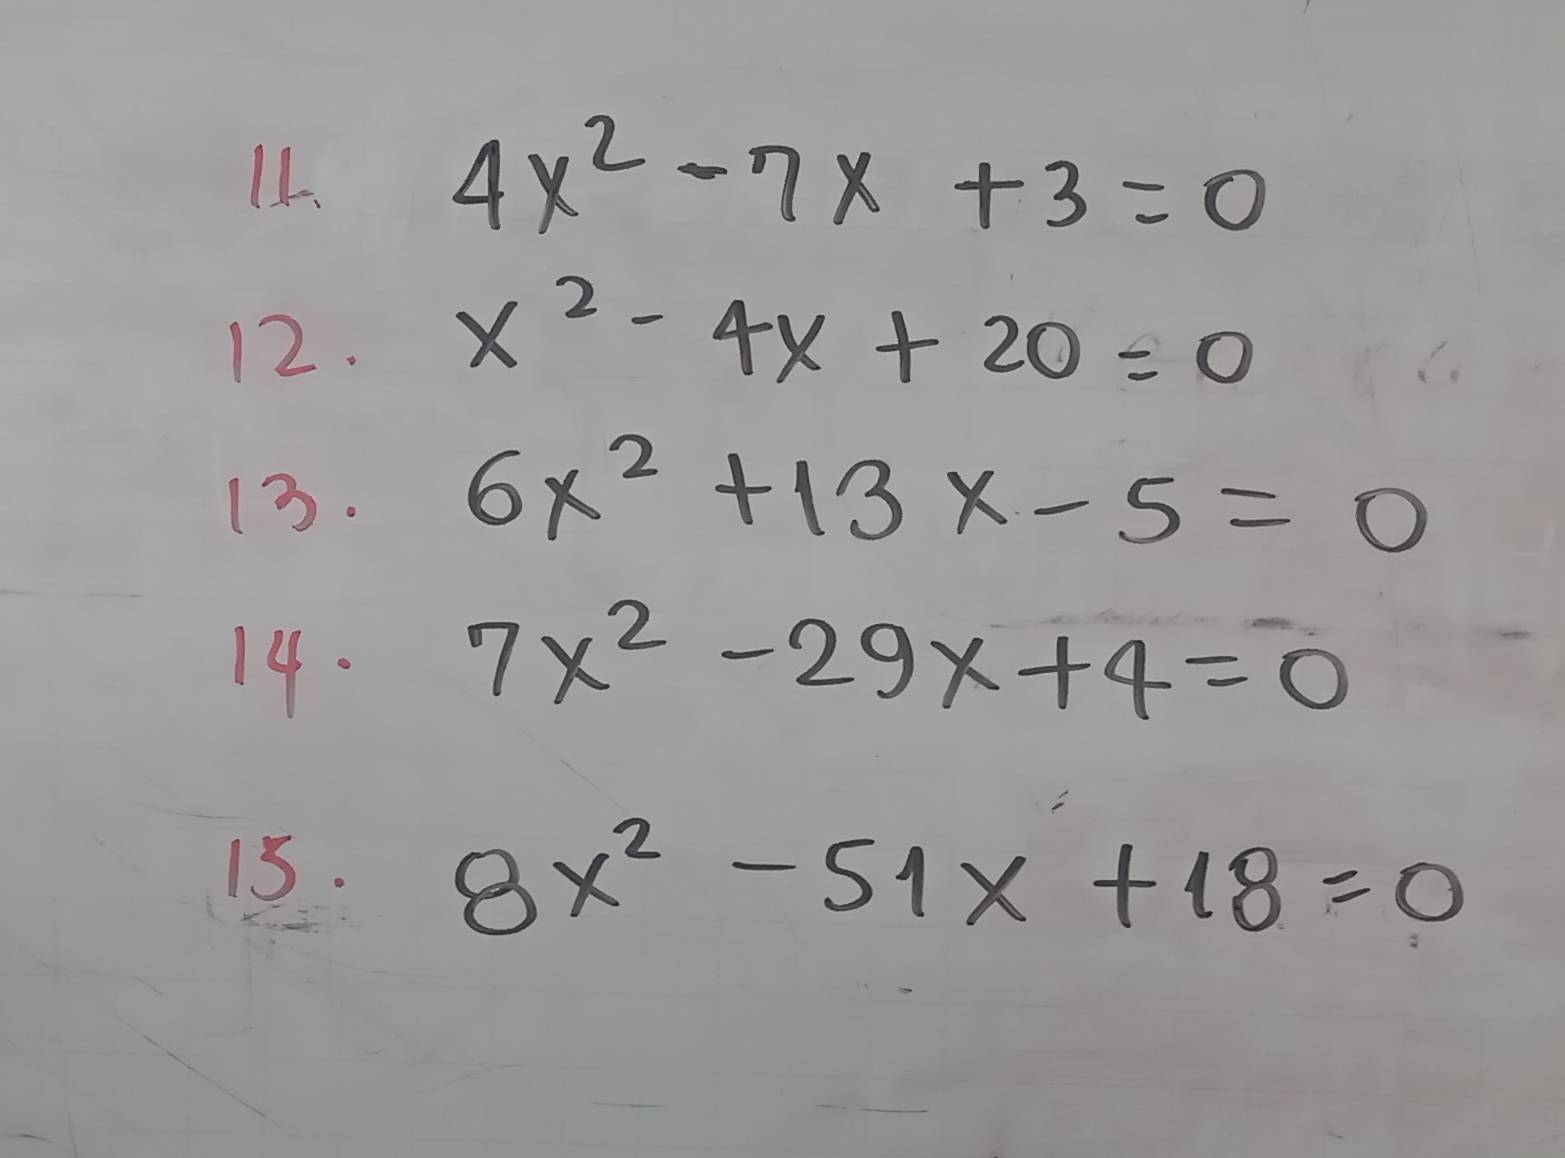 11. 4x² - 7x + 3 = 0
12. x² - 4x + 20 = 0
13. 6x² + 13x - 5 = 0
14. 7x² - 29x + 4 = 0
15. 8x² - 51x + 18 = 0